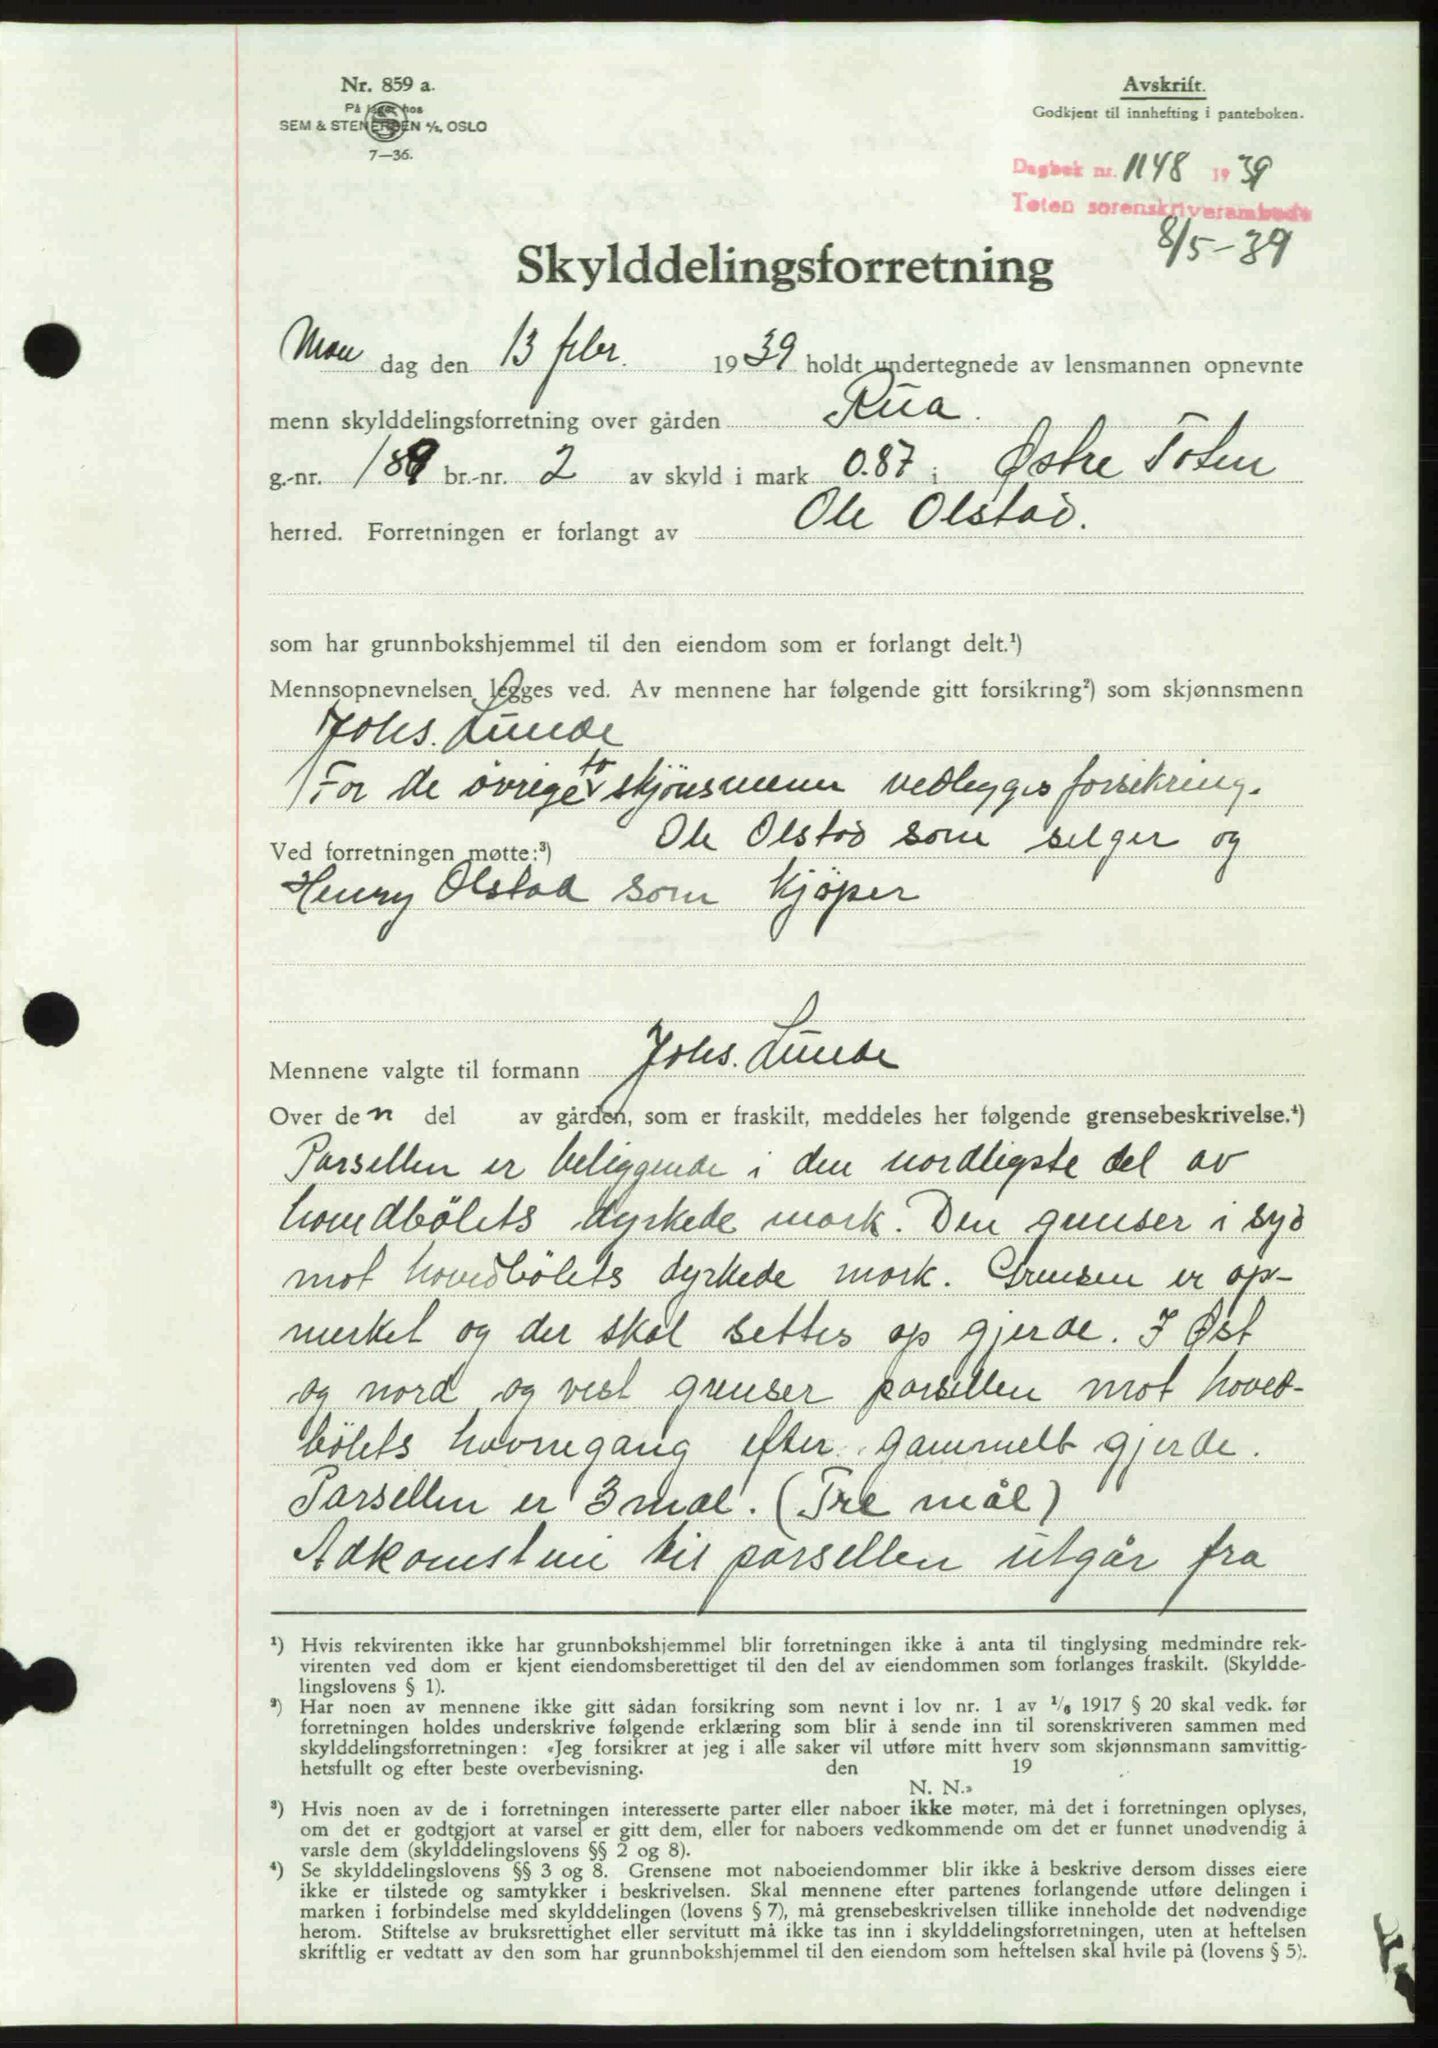 Nr. 859 a.
På lager hos
SEM & STENERSEN A/S, OSLO
7—36.
Avskrift.
Godkjent til innhefting i panteboken.
Dagbok nr. 1148 1939
Toten sorenskriverembede
8/5-39
Skylddelingsforretning
Man dag den 13 febr. 1939 holdt undertegnede av lensmannen opnevnte
menn skylddelingsforretning over gården Rua.
g.-nr. 189 br.-nr. 2 av skyld i mark 0.87 i Østre Toten
herred. Forretningen er forlangt av Ole Olstad.
som har grunnbokshjemmel til den eiendom som er forlangt delt.¹)
Mennsopnevnelsen legges ved. Av mennene har følgende gitt forsikring²) som skjønnsmenn
Johs. Lunde
For de övrige to skjönsmenn vedlegges forsikring.
Ved forretningen møtte:³) Ole Olstad som selger og
Henry Olstad som kjöper
Mennene valgte til formann Johs. Lunde
Over den del av gården, som er fraskilt, meddeles her følgende grensebeskrivelse.⁴)
Parsellen er beliggende i den nordligste del av
hovedbölets dyrkede mark. Den grenser i syd
mot hovedbölets dyrkede mark. Grensen er op-
merket og der skal settes op gjerde. I Øst
og nord og vest grenser parsellen mot hoved-
bölets havnegang efter gammelt gjerde.
Parsellen er 3 mål. (Tre mål)
Adkomst til parsellen utgår fra
¹) Hvis rekvirenten ikke har grunnbokshjemmel blir forretningen ikke å anta til tinglysing medmindre rek-
virenten ved dom er kjent eiendomsberettiget til den del av eiendommen som forlanges fraskilt. (Skyldde-
lingslovens § 1).
²) Har noen av mennene ikke gitt sådan forsikring som nevnt i lov nr. 1 av 1/6 1917 § 20 skal vedk. før
forretningen holdes underskrive følgende erklæring som blir å sende inn til sorenskriveren sammen med
skylddelingsforretningen: «Jeg forsikrer at jeg i alle saker vil utføre mitt hverv som skjønnsmann samvittig-
hetsfullt og efter beste overbevisning. den 19
N. N.»
³) Hvis noen av de i forretningen interesserte parter eller naboer ikke møter, må det i forretningen oplyses,
om det er godtgjort at varsel er gitt dem, eller for naboers vedkommende om det er funnet unødvendig å
varsle dem (skylddelingslovens §§ 2 og 8).
⁴) Se skylddelingslovens §§ 3 og 8. Grensene mot naboeiendommer blir ikke å beskrive dersom disses eiere
ikke er tilstede og samtykker i beskrivelsen. Skal mennene efter partenes forlangende utføre delingen i
marken i forbindelse med skylddelingen (lovens § 7), må grensebeskrivelsen tillike inneholde det nødvendige
herom. Stiftelse av bruksrettighet eller servitutt må ikke tas inn i skylddelingsforretningen, uten at heftelsen
skriftlig er vedtatt av den som har grunnbokshjemmel til den eiendom som heftelsen skal hvile på (lovens § 5).